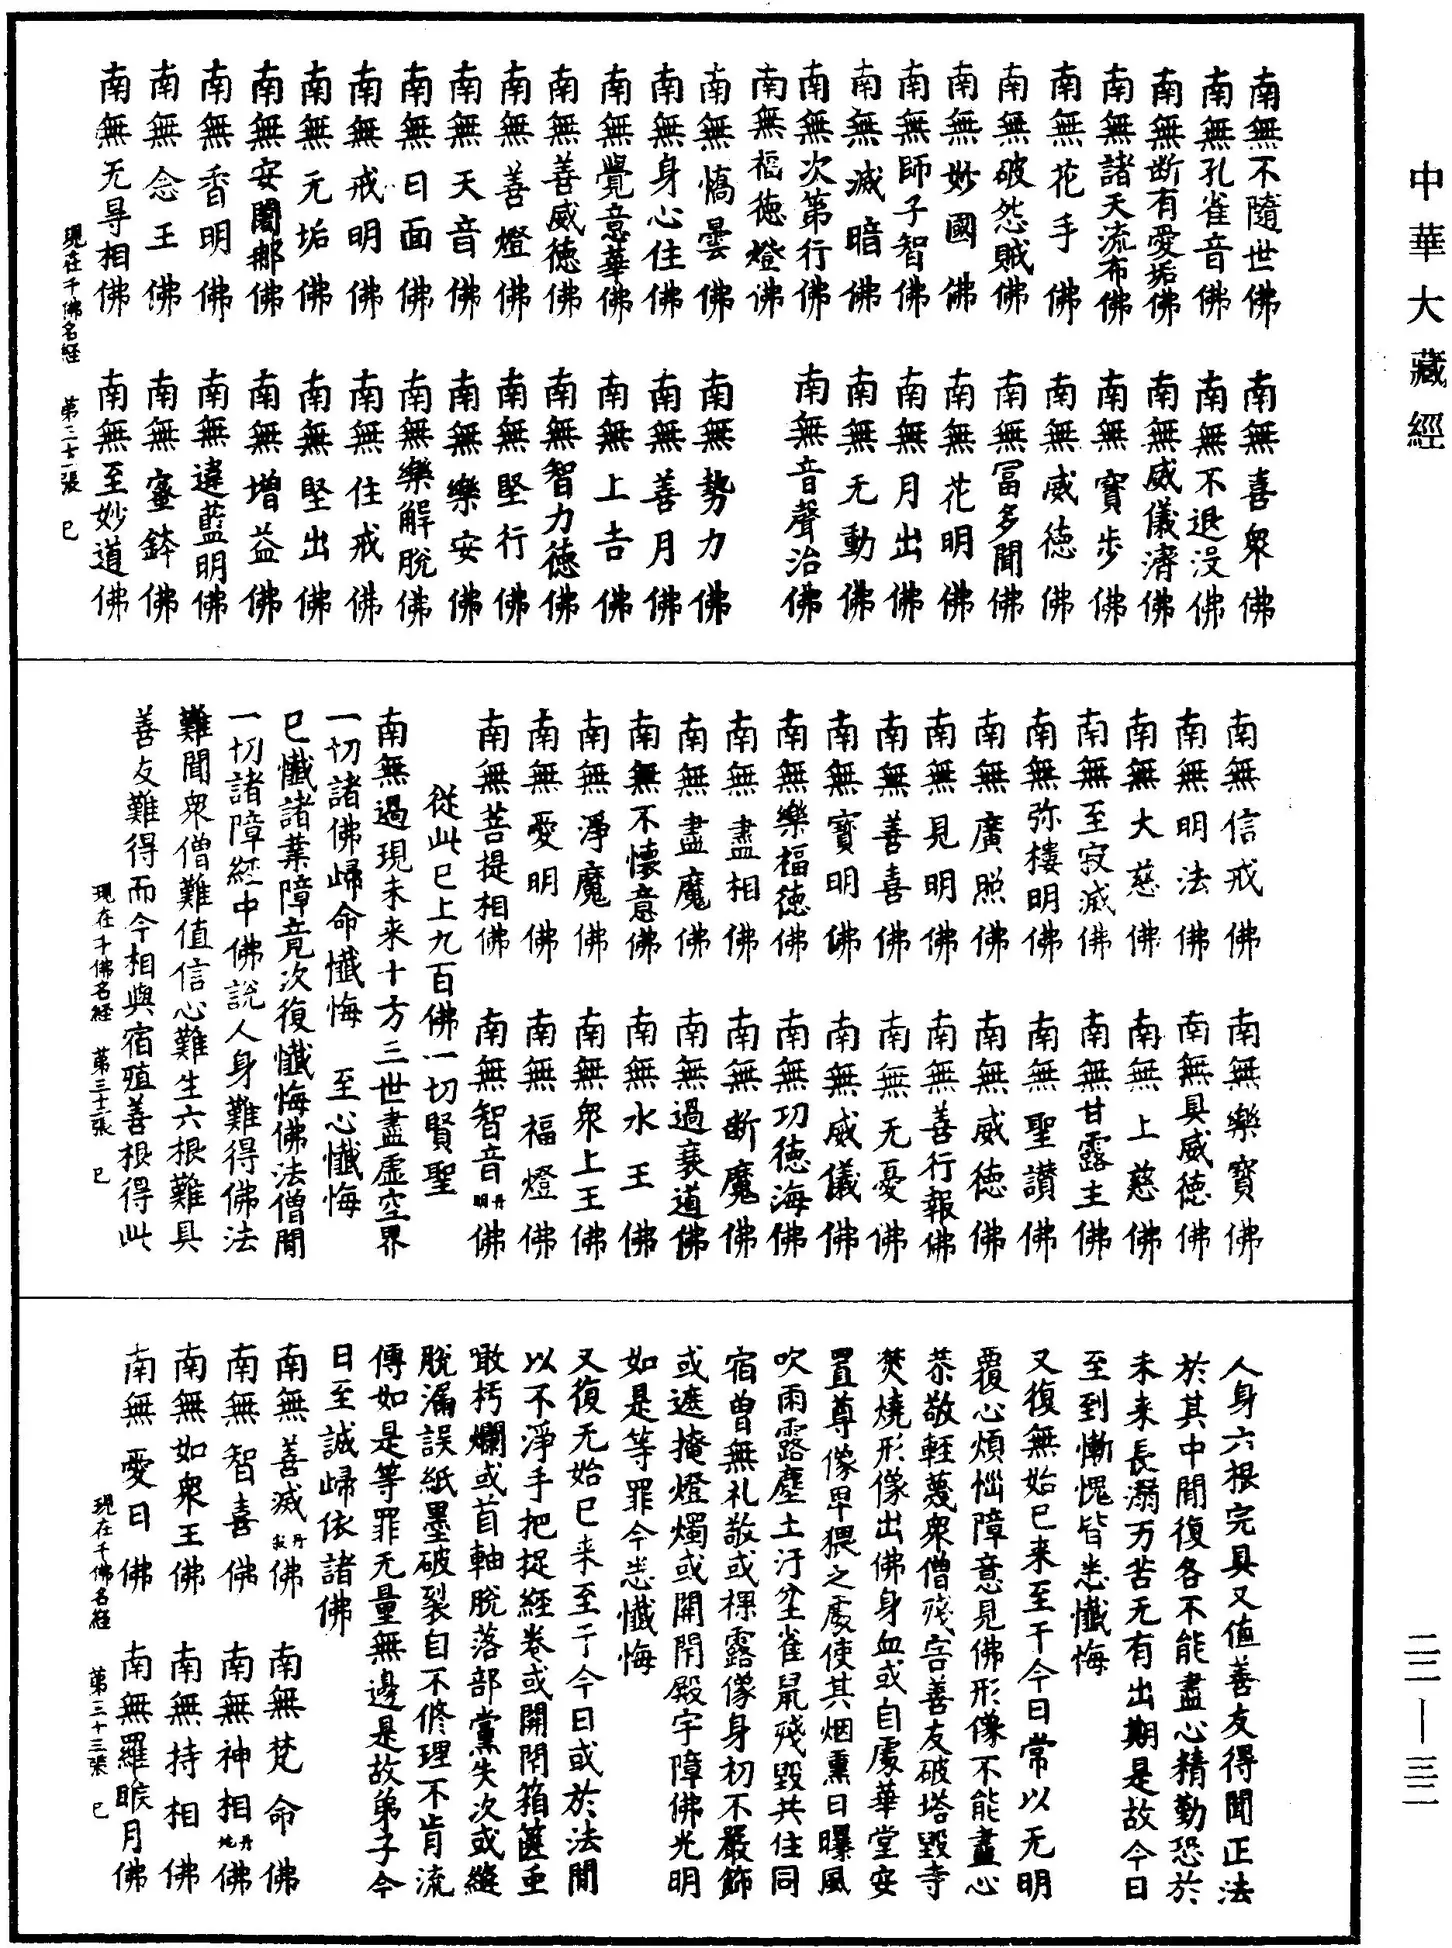 中華大藏經
南無不隨世佛　南無喜衆佛
南無孔雀音佛　南無不退没佛
南無断有愛垢佛　南無威儀濟佛
南無諸天流布佛　南無寶步佛
南無花手佛　南無威徳佛
南無破怨賊佛　南無冨多聞佛
南無妙國佛　南無花明佛
南無師子智佛　南無月出佛
南無滅暗佛　南無无動佛
南無次第行佛　南無音聲治佛
南無福徳燈佛
南無憍曇佛　南無勢力佛
南無身心住佛　南無善月佛
南無覺意華佛　南無上吉佛
南無善威徳佛　南無智力徳佛
南無善燈佛　南無堅行佛
南無天音佛　南無樂安佛
南無日面佛　南無樂解脫佛
南無戒明佛　南無住戒佛
南無无垢佛　南無堅出佛
南無安闍那佛　南無增益佛
南無香明佛　南無違藍明佛
南無念王佛　南無蜜鉢佛
南無无㝵相佛　南無至妙道佛
現在千佛名経　第三十一張　已
南無信戒佛　南無樂寶佛
南無明法佛　南無具威徳佛
南無大慈佛　南無上慈佛
南無至寂滅佛　南無甘露主佛
南無弥樓明佛　南無聖讃佛
南無廣照佛　南無威徳佛
南無見明佛　南無善行報佛
南無善喜佛　南無无憂佛
南無寶明佛　南無威儀佛
南無樂福徳佛　南無功徳海佛
南無盡相佛　南無断魔佛
南無盡魔佛　南無過衰道佛
南無不懐意佛　南無水王佛
南無淨魔佛　南無衆上王佛
南無愛明佛　南無福燈佛
南無菩提相佛　南無智音丹明佛
從此已上九百佛一切賢聖
南無過現未来十方三世盡虛空界
一切諸佛歸命懺悔　至心懺悔
已懺諸業障竟次復懺悔佛法僧間
一切諸障經中佛說人身難得佛法
難聞衆僧難值信心難生六根難具
善友難得而今相與宿殖善根得此
現在千佛名経　第三十二張　已
人身六根完具又值善友得聞正法
於其中間復各不能盡心精勤恐於
未来長溺万苦无有出期是故今日
至到慚愧皆悉懺悔
又復無始已来至于今日常以无明
覆心煩惱障意見佛形像不能盡心
恭敬輕蔑衆僧殘害善友破塔毀寺
焚燒形像出佛身血或自處華堂安
置尊像卑猥之處使其烟熏日曝風
吹雨露塵土汙坌雀鼠殘毀共住同
宿曽無礼敬或裸露像身初不嚴飾
或遮掩燈燭或開閇殿宇障佛光明
如是等罪今悉懺悔
又復无始已来至于今日或於法間
以不淨手把捉経卷或開閇箱篋虫
噉朽爛或首軸脫落部黨失次或縫
脫漏誤紙墨破裂自不修理不肯流
傳如是等罪无量無邊是故弟子今
日至誠歸依諸佛
南無善滅丹寂佛　南無梵命佛
南無智喜佛　南無神相丹地佛
南無如衆王佛　南無持相佛
南無愛日佛　南無羅睺月佛
現在千佛名経　第三十三張　已
二二—三二